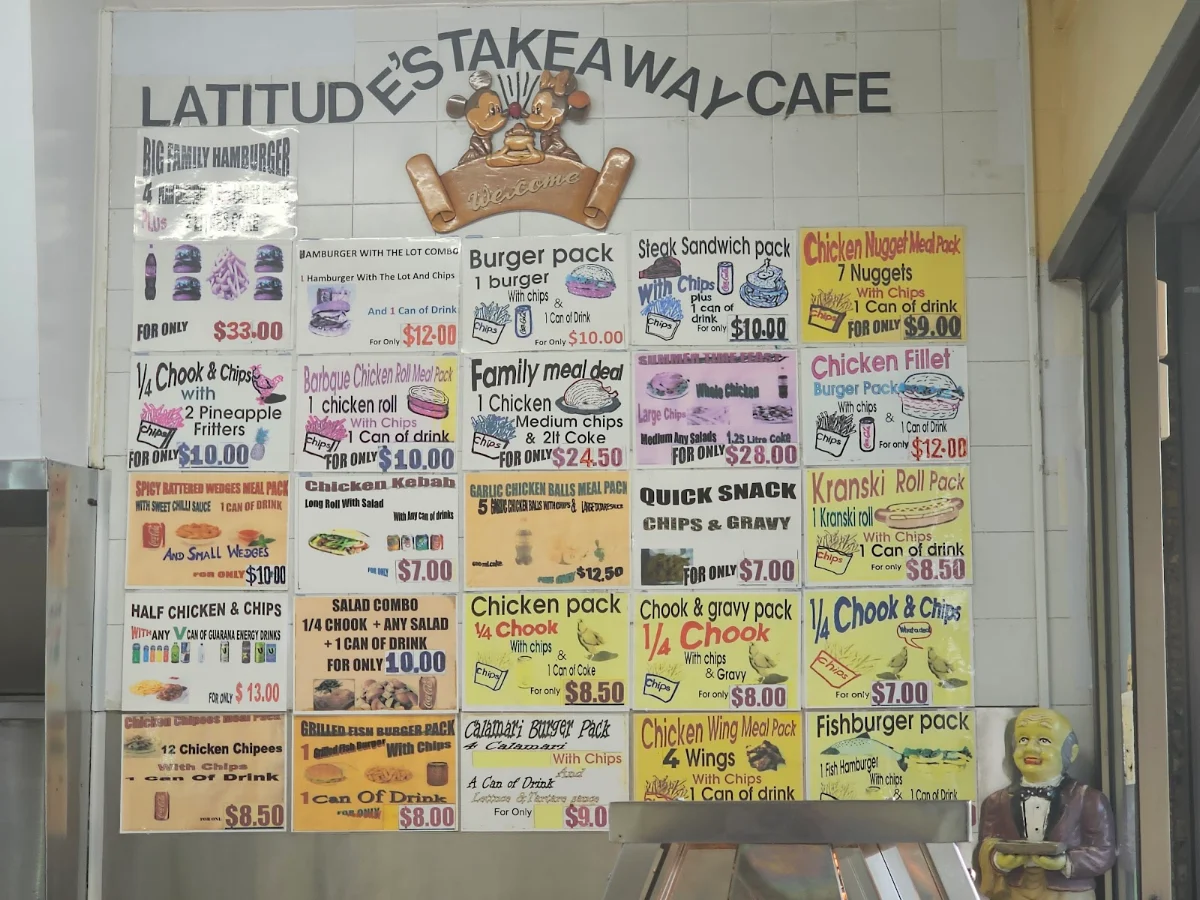 LATITUDE'S TAKEAWAY CAFE
Welcome
BIG FAMILY HAMBURGER
4
PLUS
FOR ONLY $33.00
HAMBURGER WITH THE LOT COMBO
1 Hamburger With The Lot And Chips
And 1 Can of Drink
For Only $12.00
Burger pack
1 burger
With chips
&
1 Can of Drink
Chips
For only $10.00
Steak Sandwich pack
With Chips
plus
1 can of
drink
Chips
For only $10.00
Chicken Nugget Meal Pack
7 Nuggets
With Chips
1 Can of drink
Chips
FOR ONLY $9.00
1/4 Chook & Chips
with
2 Pineapple
Fritters
Chips
FOR ONLY $10.00
Barbque Chicken Roll Meal Pack
1 chicken roll
With Chips
1 Can of drink
Chips
FOR ONLY $10.00
Family meal deal
1 Chicken
Medium chips
& 2lt Coke
Chips
FOR ONLY $24.50
SUMMER TIME FEAST
Whole Chicken
Large Chips
Medium Any Salads 1.25 Litre Coke
FOR ONLY $28.00
Chicken Fillet
Burger Pack
With chips
&
1 Can of Drink
Chips
For only $12.00
SPICY BATTERED WEDGES MEAL PACK
WITH SWEET CHILLI SAUCE 1 CAN OF DRINK
AND SMALL WEDGES
FOR ONLY $10.00
Chicken Kebab
Long Roll With Salad
With Any can of drinks
FOR ONLY $7.00
GARLIC CHICKEN BALLS MEAL PACK
5 GARLIC CHICKEN BALLS WITH CHIPS &
$12.50
QUICK SNACK
CHIPS & GRAVY
FOR ONLY $7.00
Kranski Roll Pack
1 Kranski roll
With Chips
1 Can of drink
Chips
For only $8.50
HALF CHICKEN & CHIPS
WITH ANY V CAN OF GUARANA ENERGY DRINKS
FOR ONLY $13.00
SALAD COMBO
1/4 CHOOK + ANY SALAD
+ 1 CAN OF DRINK
FOR ONLY 10.00
Chicken pack
1/4 Chook
With chips
&
1 Can of Coke
Chips
For only $8.50
Chook & gravy pack
1/4 Chook
With chips
& Gravy
Chips
For only $8.00
1/4 Chook & Chips
What a deal
Chips
For only $7.00
Chicken Chipees Meal Pack
12 Chicken Chipees
With Chips
1 can Of Drink
FOR ONLY $8.50
GRILLED FISH BURGER PACK
1 Grilled Fish Burger With Chips
1 Can Of Drink
FOR ONLY $8.00
Calamari Burger Pack
4 Calamari
With Chips
And
A Can of Drink
Lettuce & Tartare sauce
For Only $9.0
Chicken Wing Meal Pack
4 Wings
With Chips
1 Can of drink
Fishburger pack
1 Fish Hamburger
With chips
&
1 Can of Drink